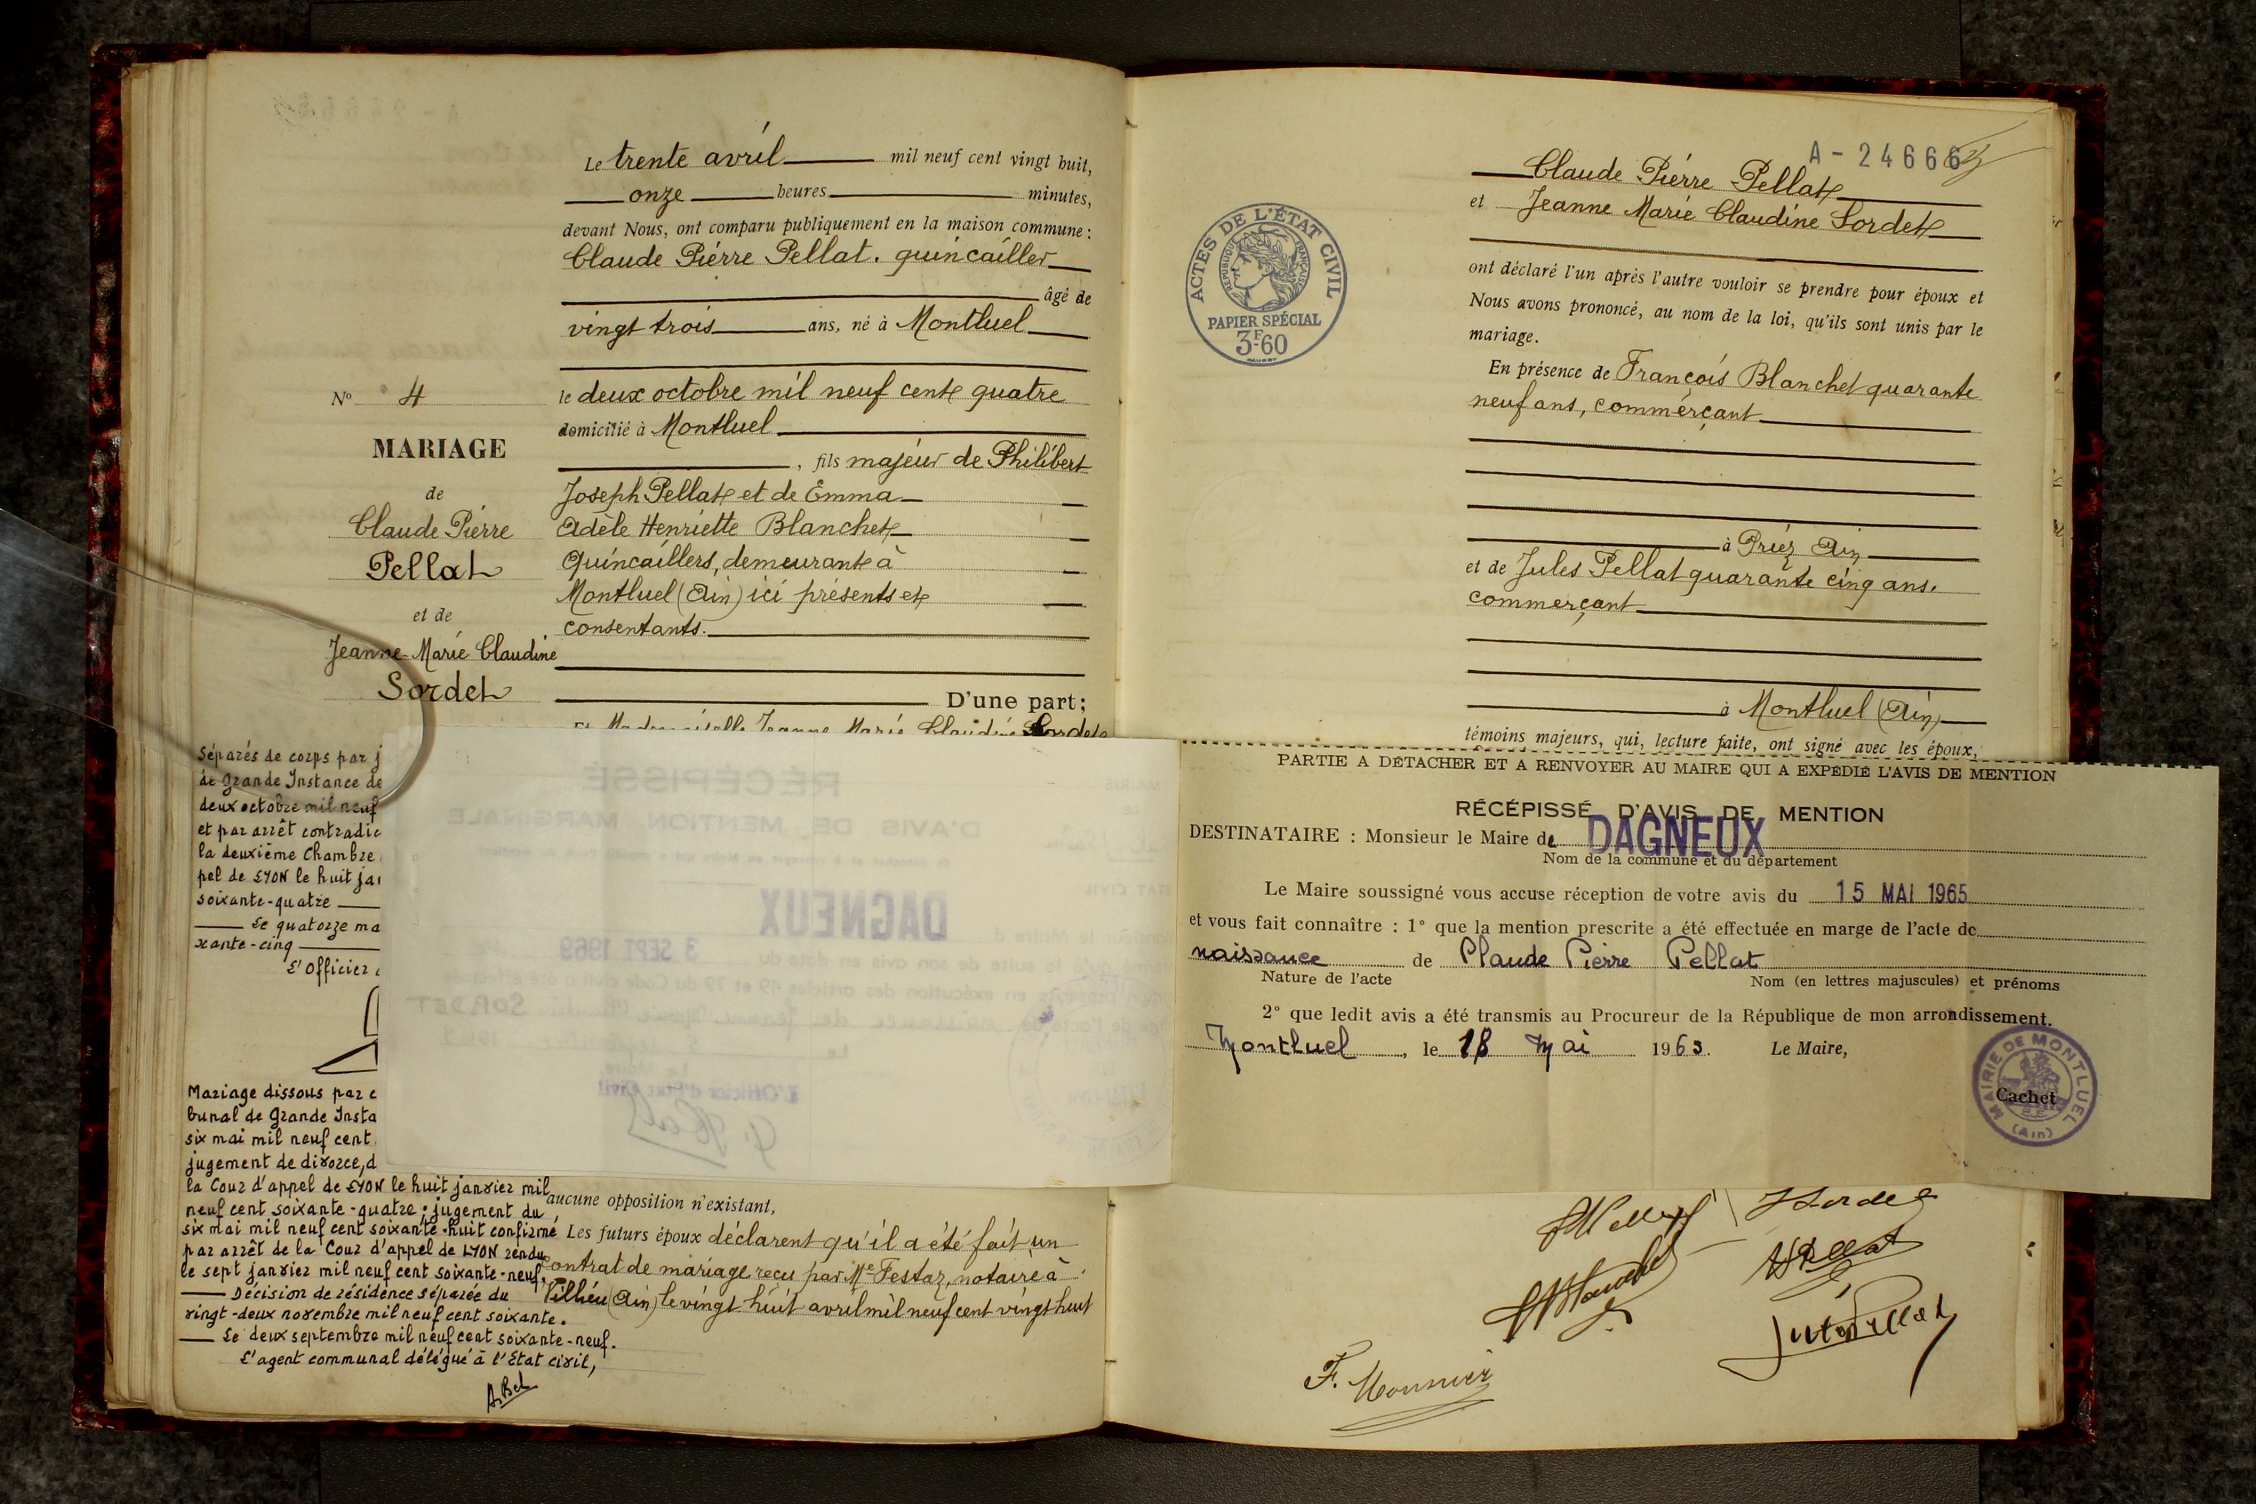 Le trente avril mil neuf cent vingt huit,
onze heures minutes,
devant Nous, ont comparu publiquement en la maison commune :
Claude Pierre Pellat. quincailler
âgé de
vingt trois ans, né à Montluel
le deux octobre mil neuf cent quatre
domicilié à Montluel
, fils majeur de Philibert
Joseph Pellat et de Emma
Adèle Henriette Blanchet
Quincaillers, demeurant à
Montluel (Ain) ici présents et
consentants.
D'une part;
Et Mademoiselle Jeanne Marie Claudine Sordet
N° 4
MARIAGE
de
Claude Pierre
Pellat
et de
Jeanne Marie Claudine
Sordet
Séparés de corps par j
de Grande Instance de
deux octobre mil neuf
et par arrêt contradic
la deuxième Chambre
pel de LYON le huit jan
soixante-quatre
Le quatorze ma
xante-cinq
L'Officier
Mariage dissous par
bunal de Grande Insta
six mai mil neuf cent
jugement de divorce, d
la Cour d'appel de LYON le huit janvier mil
neuf cent soixante-quatre ; jugement du
six mai mil neuf cent soixante-huit confirmé
par arrêt de la Cour d'appel de LYON rendu
le sept janvier mil neuf cent soixante-neuf.
Décision de résidence séparée du
vingt-deux novembre mil neuf cent soixante.
Le deux septembre mil neuf cent soixante-neuf.
L'agent communal délégué à l'Etat civil,
aucune opposition n'existant,
Les futurs époux déclarent qu'il a été fait un
contrat de mariage reçu par Me Festaz, notaire à
Villieu (Ain) le vingt huit avril mil neuf cent vingt huit
RÉCÉPISSÉ
D'AVIS DE MENTION MARGINALE
DAGNEUX
3 SEPT 1969
SORDET
L'Officier d'Etat Civil
A - 24666
Claude Pierre Pellat
et Jeanne Marie Claudine Sordet
ont déclaré l'un après l'autre vouloir se prendre pour époux et
Nous avons prononcé, au nom de la loi, qu'ils sont unis par le
mariage.
En présence de François Blanchet quarante
neuf ans, commerçant
à Priez Ain
et de Jules Pellat quarante cinq ans.
commerçant
à Montluel (Ain)
témoins majeurs, qui, lecture faite, ont signé avec les époux,
ACTES DE L'ÉTAT CIVIL
RÉPUBLIQUE FRANÇAISE
PAPIER SPÉCIAL
3F60
PARTIE A DÉTACHER ET A RENVOYER AU MAIRE QUI A EXPÉDIÉ L'AVIS DE MENTION
RÉCÉPISSÉ D'AVIS DE MENTION
DESTINATAIRE : Monsieur le Maire de DAGNEUX
Nom de la commune et du département
Le Maire soussigné vous accuse réception de votre avis du 15 MAI 1965
et vous fait connaître : 1° que la mention prescrite a été effectuée en marge de l'acte de
naissance de Claude Pierre Pellat
Nature de l'acte Nom (en lettres majuscules) et prénoms
2° que ledit avis a été transmis au Procureur de la République de mon arrondissement.
Montluel, le 18 Mai 1965. Le Maire,
Cachet
MAIRIE DE MONTLUEL
(Ain)
F. Mounier
Jules Pellat